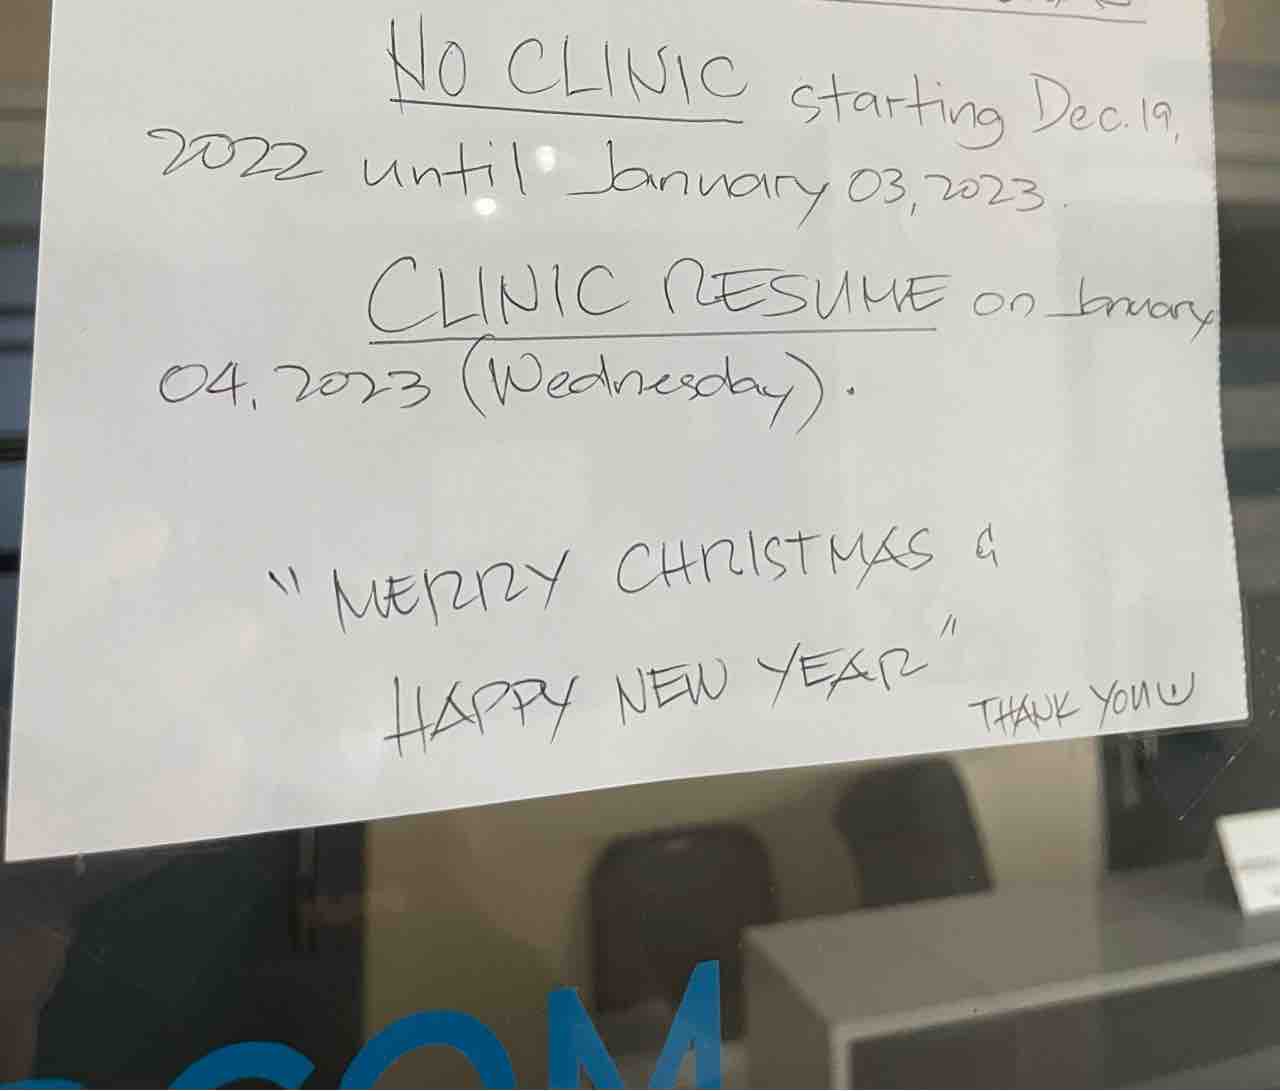 NO CLINIC starting Dec. 19,
2022 until January 03, 2023.
CLINIC RESUME on January
04, 2023 (Wednesday).
"MERRY CHRISTMAS &
HAPPY NEW YEAR"
THANK YOU
COM